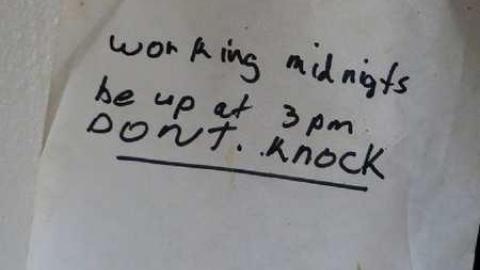 working midnigts
be up at 3 pm
DONT. KNOCK